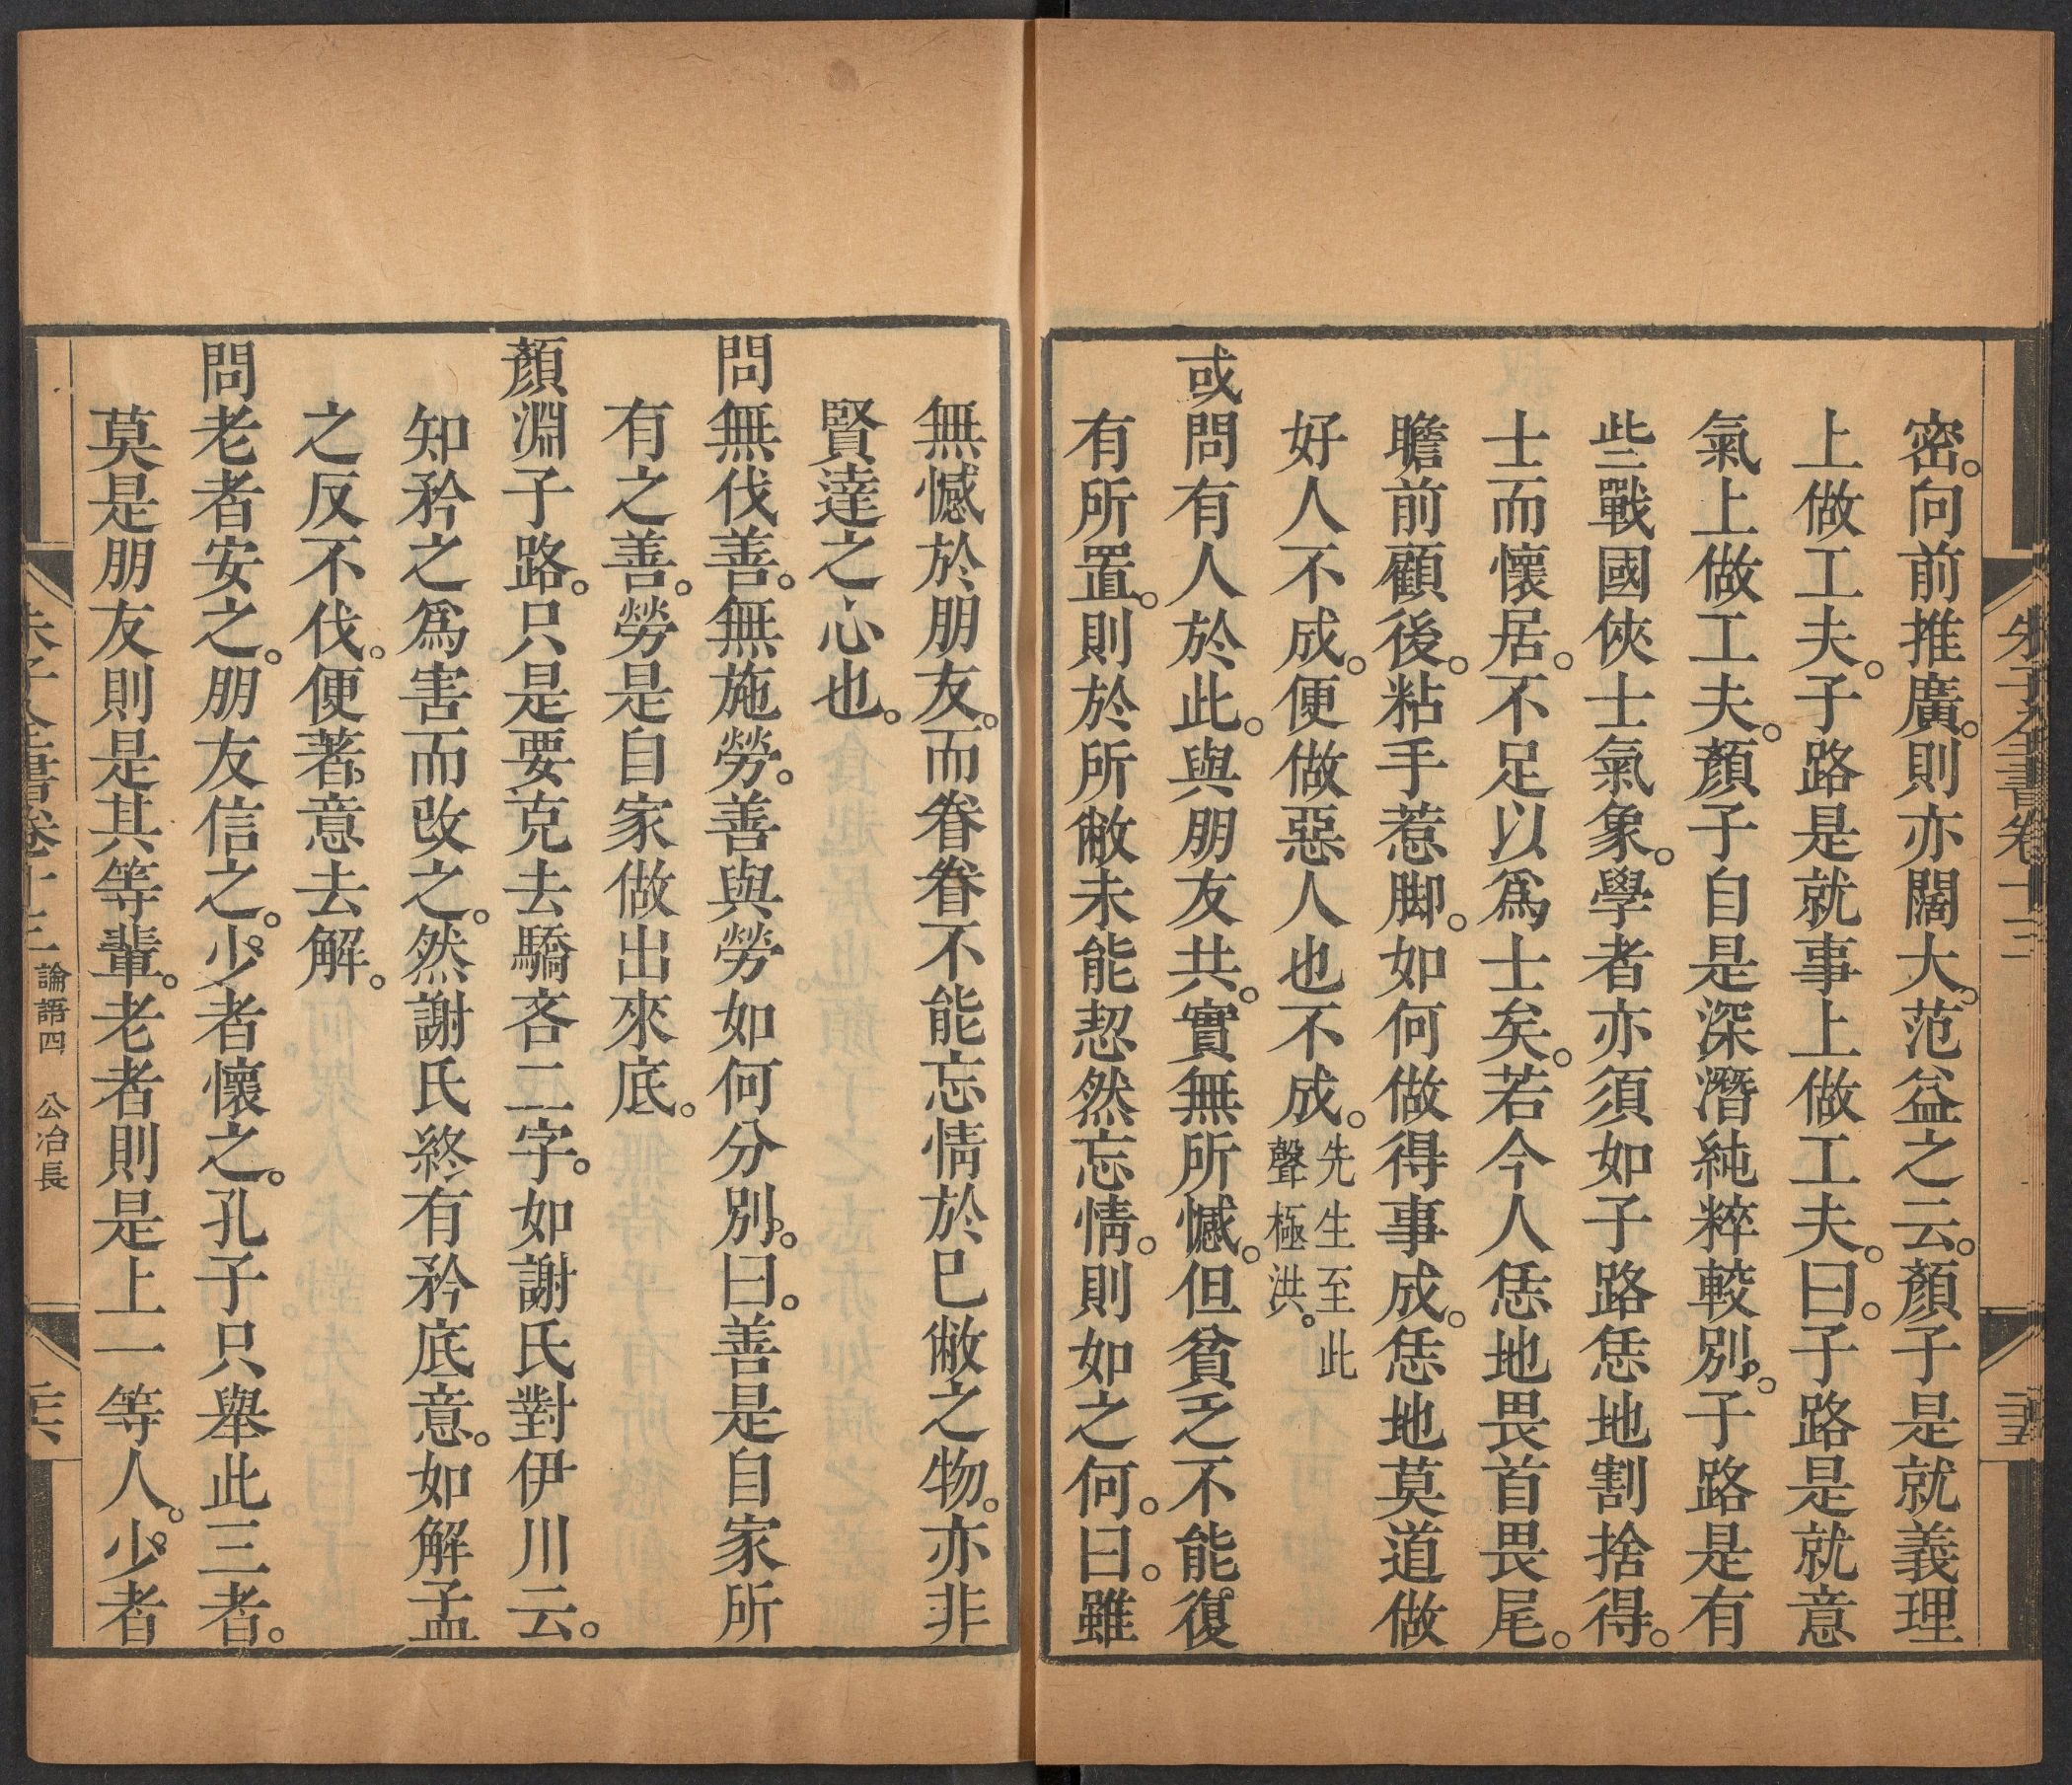 朱子全書卷十三
二十五
密。向前推廣。則亦闊大。范益之云。顏子是就義理
上做工夫。子路是就事上做工夫。曰。子路是就意
氣上做工夫。顏子自是深潛純粹較別。子路是有
些戰國俠士氣象。學者亦須如子路恁地割捨得。
士而懷居。不足以爲士矣。若今人恁地畏首畏尾。
瞻前顧後。粘手惹脚。如何做得事成。恁地莫道做
好人不成。便做惡人也不成。先生至此聲極洪。
或問有人於此。與朋友共。實無所憾。但貧乏不能復
有所置。則於所敝未能恝然忘情。則如之何。曰。雖
無憾於朋友。而眷眷不能忘情於已敝之物。亦非
賢達之心也。
問無伐善。無施勞。善與勞如何分別。曰。善是自家所
有之善。勞是自家做出來底。
顏淵子路。只是要克去驕吝二字。如謝氏對伊川云。
知矜之爲害而改之。然謝氏終有矜底意。如解孟
之反不伐。便著意去解。
問老者安之。朋友信之。少者懷之。孔子只舉此三者。
莫是朋友則是其等輩。老者則是上一等人。少者
朱子全書卷十三 論語四 公冶長
二十六